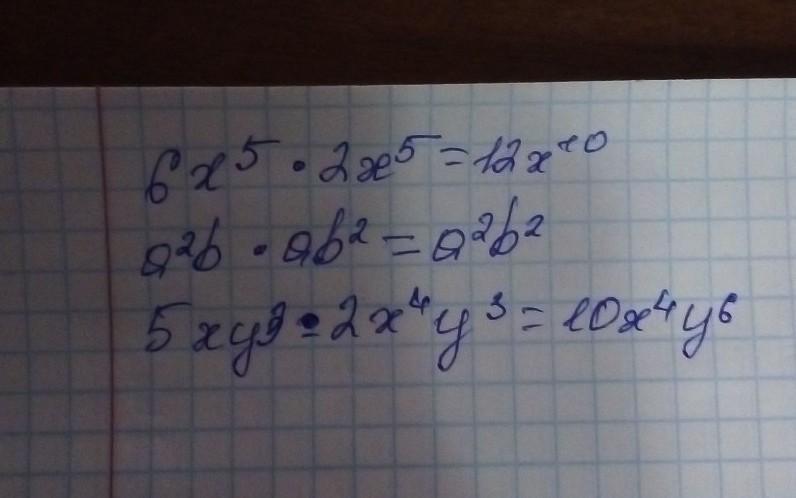 6x⁵ · 2x⁵ = 12x¹⁰
a²b · ab² = a²b²
5xy³ · 2x⁴y³ = 10x⁴y⁶